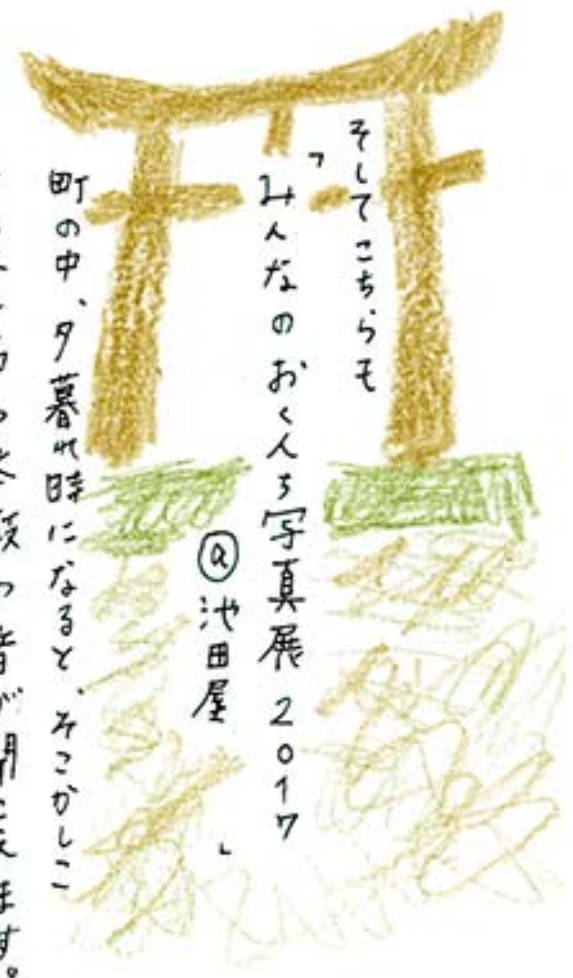 そしてこちらも
「みんなのおくんち写真展2017
@池田屋」
町の中、夕暮れ時になると、そこかしこ